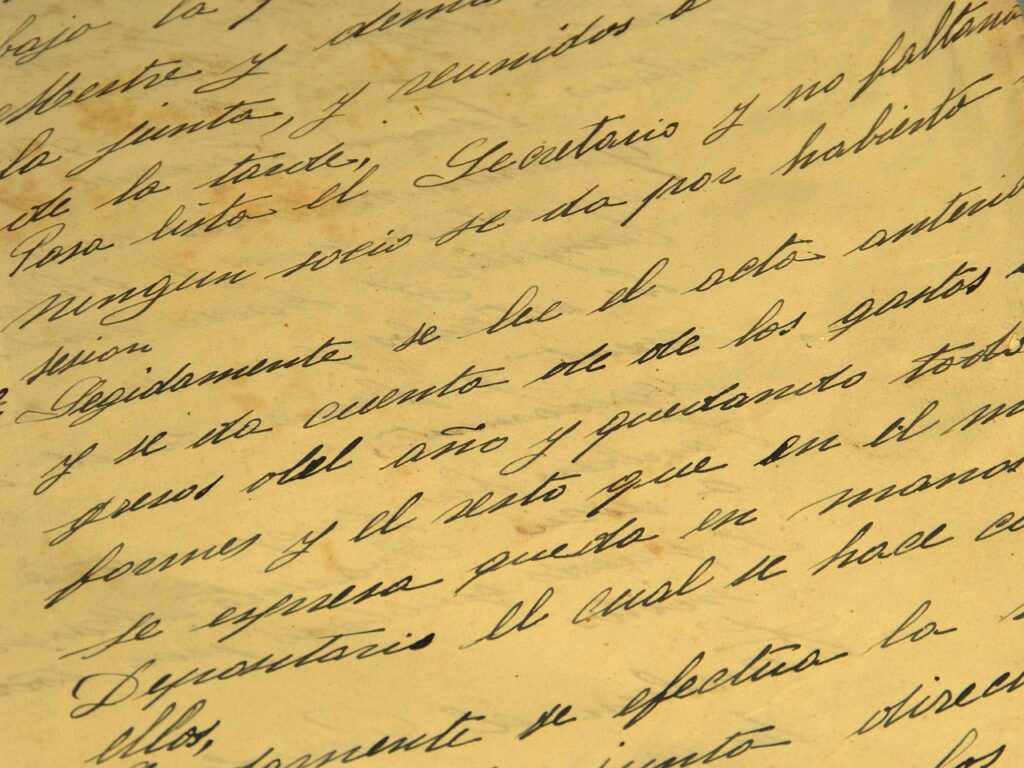 bajo la
Mestre y demas
la junta, y reunidos a
de la tarde,
Pasa lista el Secretario y no faltano
ningun socio se da por habierto
sesion
Segidamente se lee el acta anteri
y se da cuenta de de los gastos
gresos del año y quedando todo
formes y el resto que en el m
se espresa queda en manos
Depositario el cual se hace c
ellos,
mente se efectua la
junta direc
los